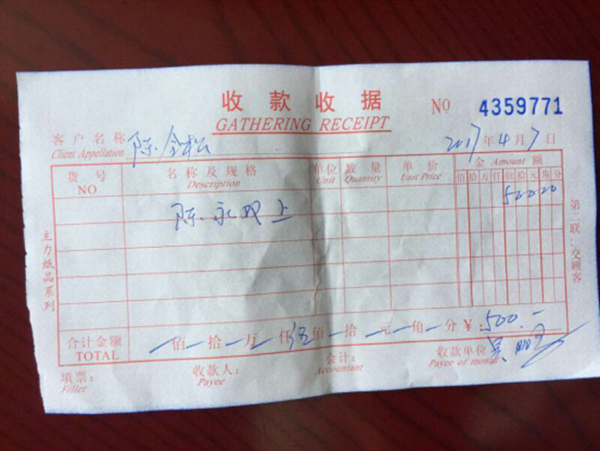 收款收据 NO 4359771
GATHERING RECEIPT
客户名称 陈金松 2017年4月7日
Client Appellation
货号 名称及规格 单位 数量 单价 金 Amount 额
NO Description Unit Quantity Unit Price 佰 拾 万 仟 佰 拾 元 角 分
50000
陈永双上
主力纸品系列
第二联:交顾客
合计金额 佰 拾 万 仟伍佰 拾 元 角 分 ¥:500.-
TOTAL
填票: 收款人: 会计: 收款单位
Filler Payee Accountant Payee of money